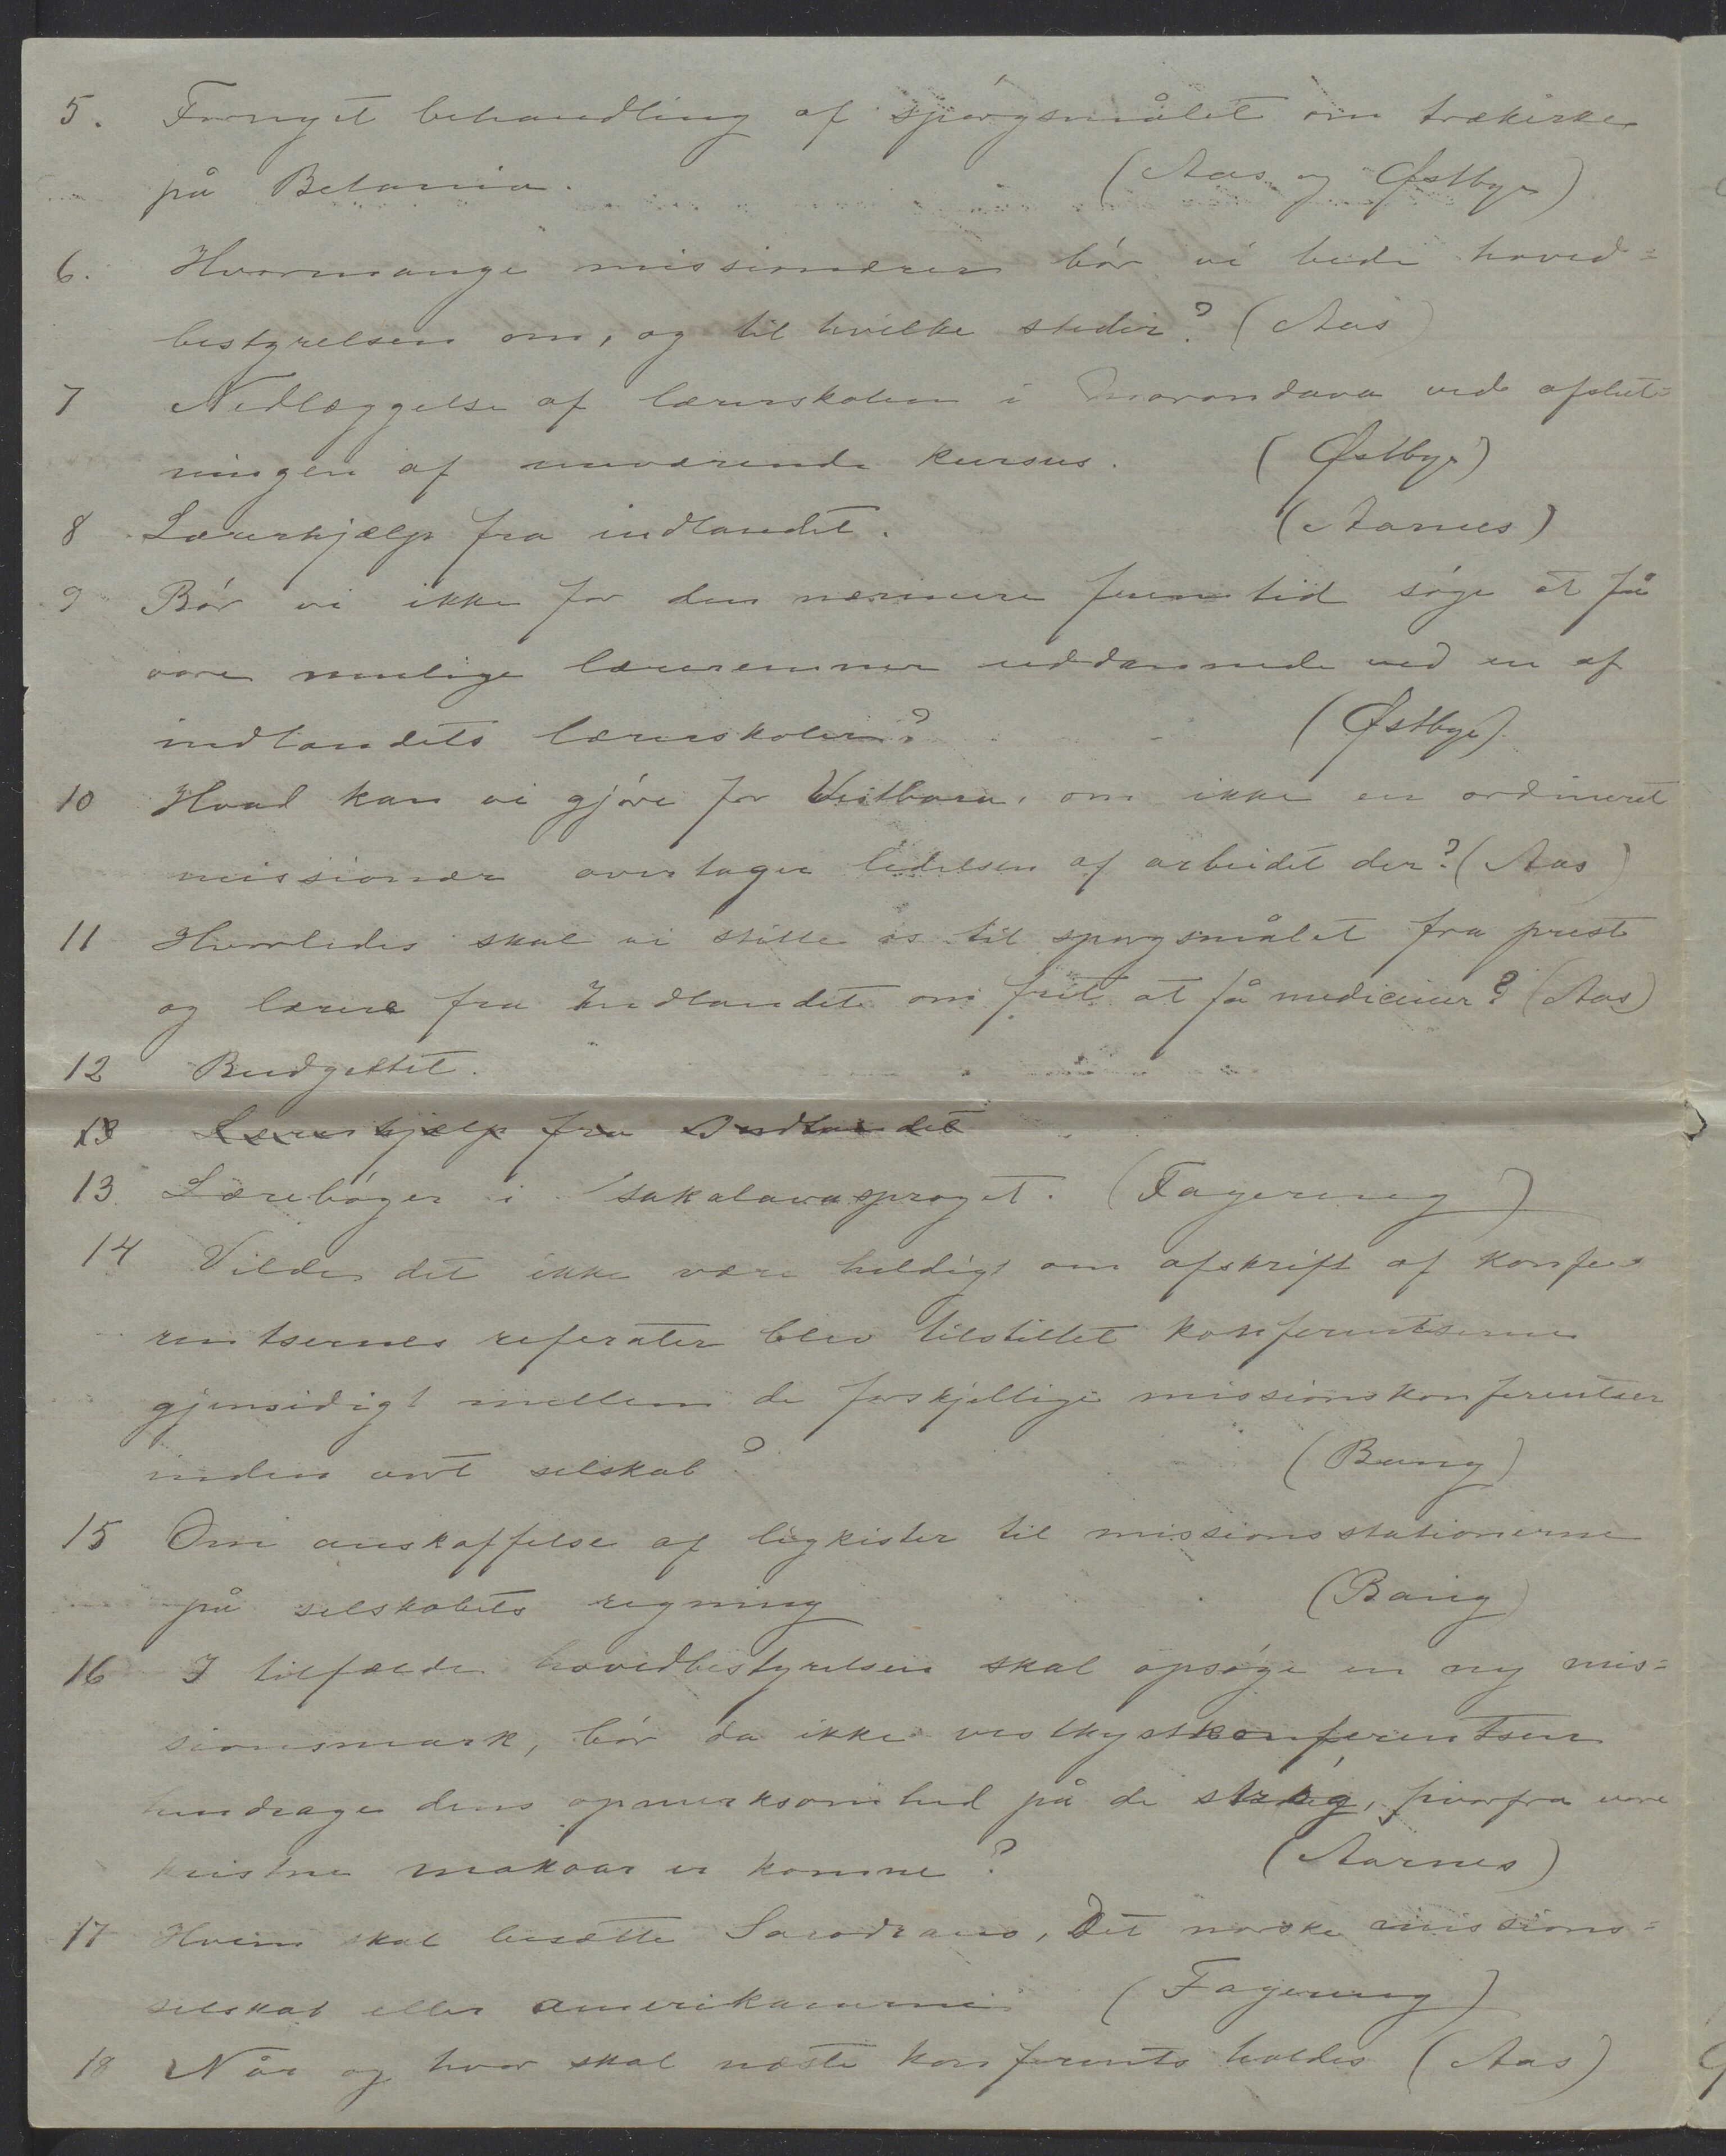 5. Fornyet behandling af spørgsmålet om trækirke
på Betania. (Aas og Østbye)
6. Hvormange missionærer bør vi bede hoved=
bestyrelsen om, og til hvilke steder? (Aas)
7 Nedlæggelse af lærerskolen i Morondava ved afslut=
ningen af nuværende kursus. (Østbye)
8 Lærerhjælp fra indlandet. (Aarnes)
9 Bør vi ikke for den nærmere fremtid søge at få
vore mulige læreremner uddannede ved en af
indlandets lærerskoler? (Østbye)
10 Hvad kan vi gjøre for Veitbara, om ikke en ordineret
missionær overtager ledelsen af arbeidet der? (Aas)
11 Hvorledes skal vi stille os til spørgsmålet fra prest
og lærere fra Indlandet om frit at få mediciner? (Aas)
12 Budgettet.
13 Lærerhjælp fra Indlandet
13. Lærebøger i sakalavasproget. (Fagereng)
14 Vilde det ikke være heldigt om afskrift af konfe=
rentsernes referater blev tilstillet konferentserne
gjensidigt mellem de forskjellige missionskonferentser
inden vort selskab? (Bang)
15 Om anskaffelse af ligkister til missionsstationerne
på selskabets regning (Bang)
16 I tilfælde hovedbestyrelsen skal opsøge en ny mis=
sionsmark, bør da ikke vestkystkonferentsen
hendrage dens opmerksomhed på de strøg, hvorfra vore
kristne makoar er komne? (Aarnes)
17 Hvem skal besætte Sarodrano, Det norske missions=
selskab eller amerikanerne (Fagereng)
18 Når og hvor skal næste konferents holdes (Aas)